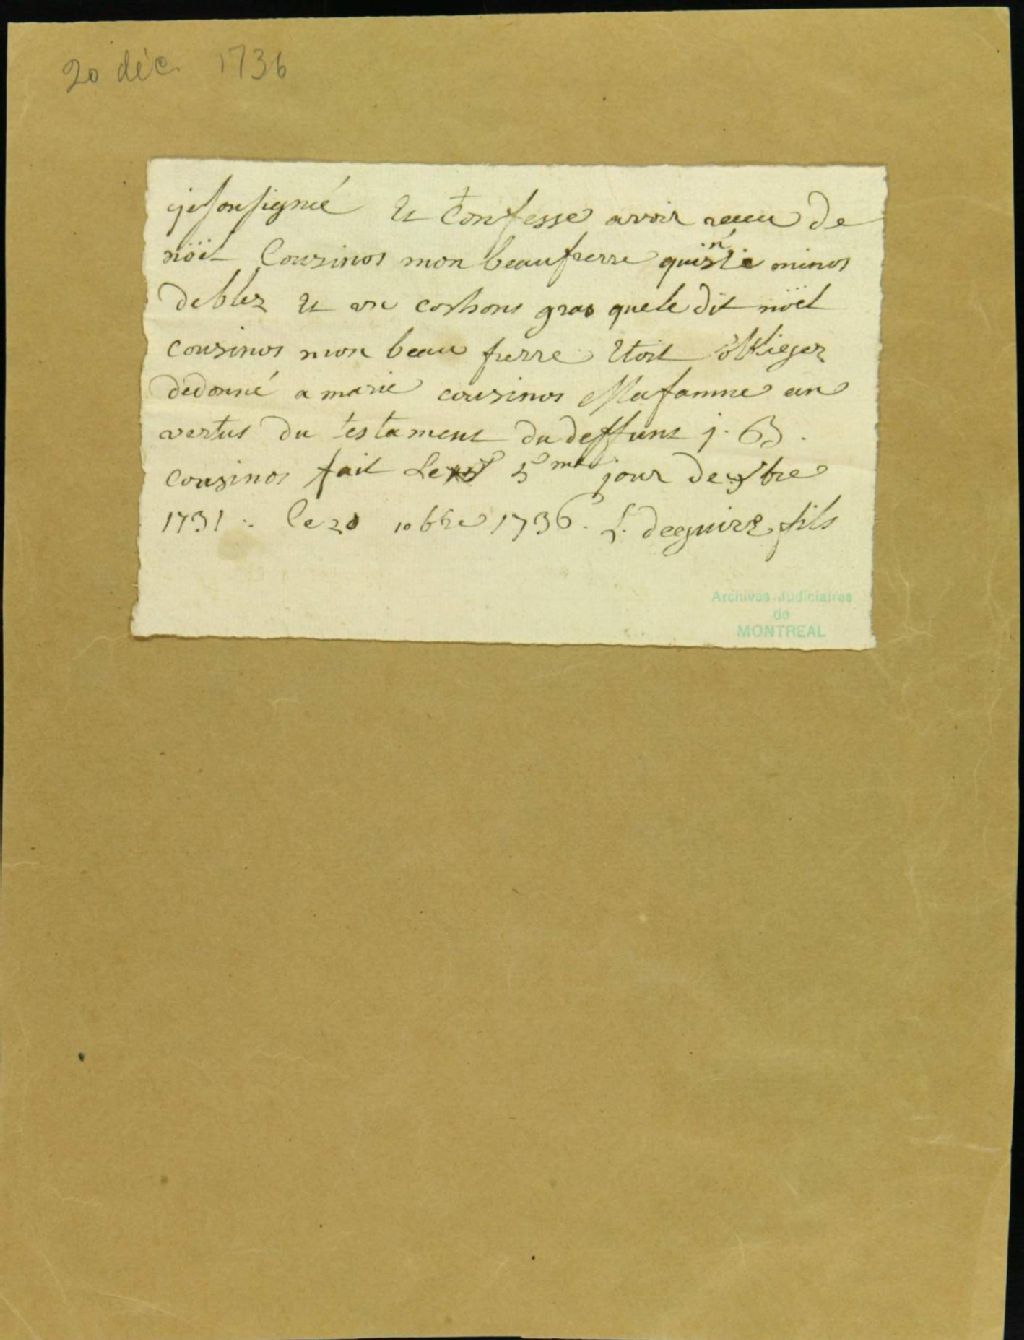 20 déc. 1736
je sousigné et Confesse avoir receu de
nöel Cousinos mon beaufrerre quinse minos
deblez et un coshons gras quele dit nöel
cousinos mon beau frerre etoit oblieger
dedonné a marie cousinos Mafamme an
vertus du testament du deffunt j. B.
cousinos fait Le 5me jour de 9bre
1731 . Le 20 10bre 1736. L. deguire fils
Archives Judiciaires
de
MONTREAL